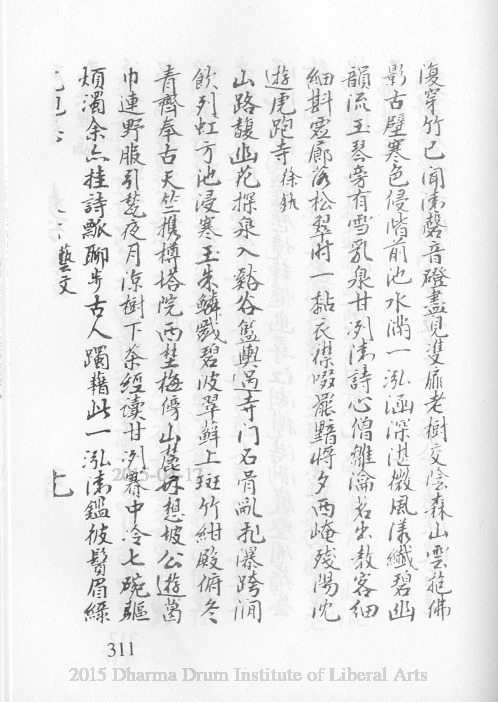 復穿竹已闻清磬音磴盡見雙扉老樹交陰森山雲抱佛
影古壁寒色侵階前池水満一泓涵深湛微風漾纖碧幽
韻流玉琴旁有雪乳泉甘洌清詩心僧雛瀹茗出教客細
細斟雲廊落松翠时一黏衣襟啜罷黯將夕西崦殘陽沈
遊虎跑寺 徐釚
山路馥幽花探泉入谿谷籃輿過寺门石骨亂
飲引虹方池浸寒玉朱鱗戲碧波翠蘚上斑竹紺殿俯冬
青齋古天竺携樽塔院西梅傍山麓再想坡公遊葛
巾連野服引夜月涼樹下茶經读甘洌賽中泠七碗驅
煩濁余亦挂詩瓢聊步古人躅藉此一泓清鑑彼鬢眉綠
藝文
七
311
2015-03-17
2015 Dharma Drum Institute of Liberal Arts